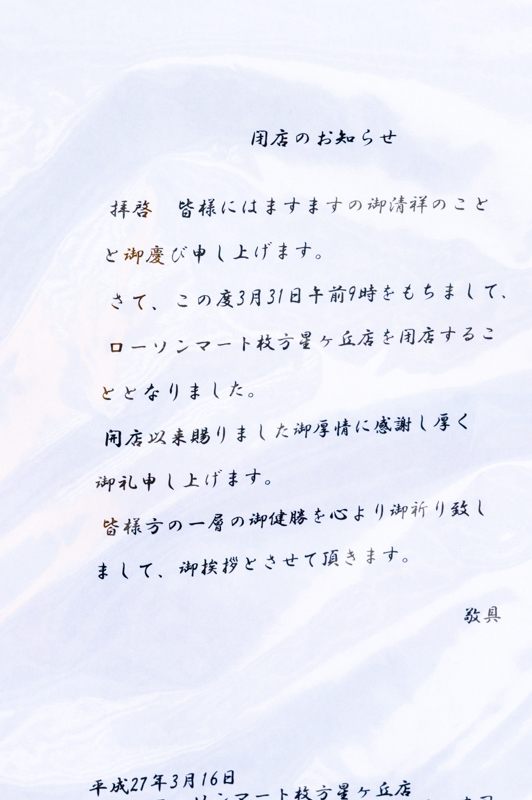 閉店のお知らせ
拝啓　皆様にはますますの御清祥のこと
と御慶び申し上げます。
さて、この度3月31日午前9時をもちまして、
ローソンマート枚方星ヶ丘店を閉店するこ
ととなりました。
開店以来賜りました御厚情に感謝し厚く
御礼申し上げます。
皆様方の一層の御健勝を心より御祈り致し
まして、御挨拶とさせて頂きます。
敬具
平成27年3月16日
ローソンマート枚方星ヶ丘店